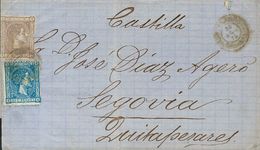 Castilla
S. D. José Díaz Agero
Segovia
Quitapesares